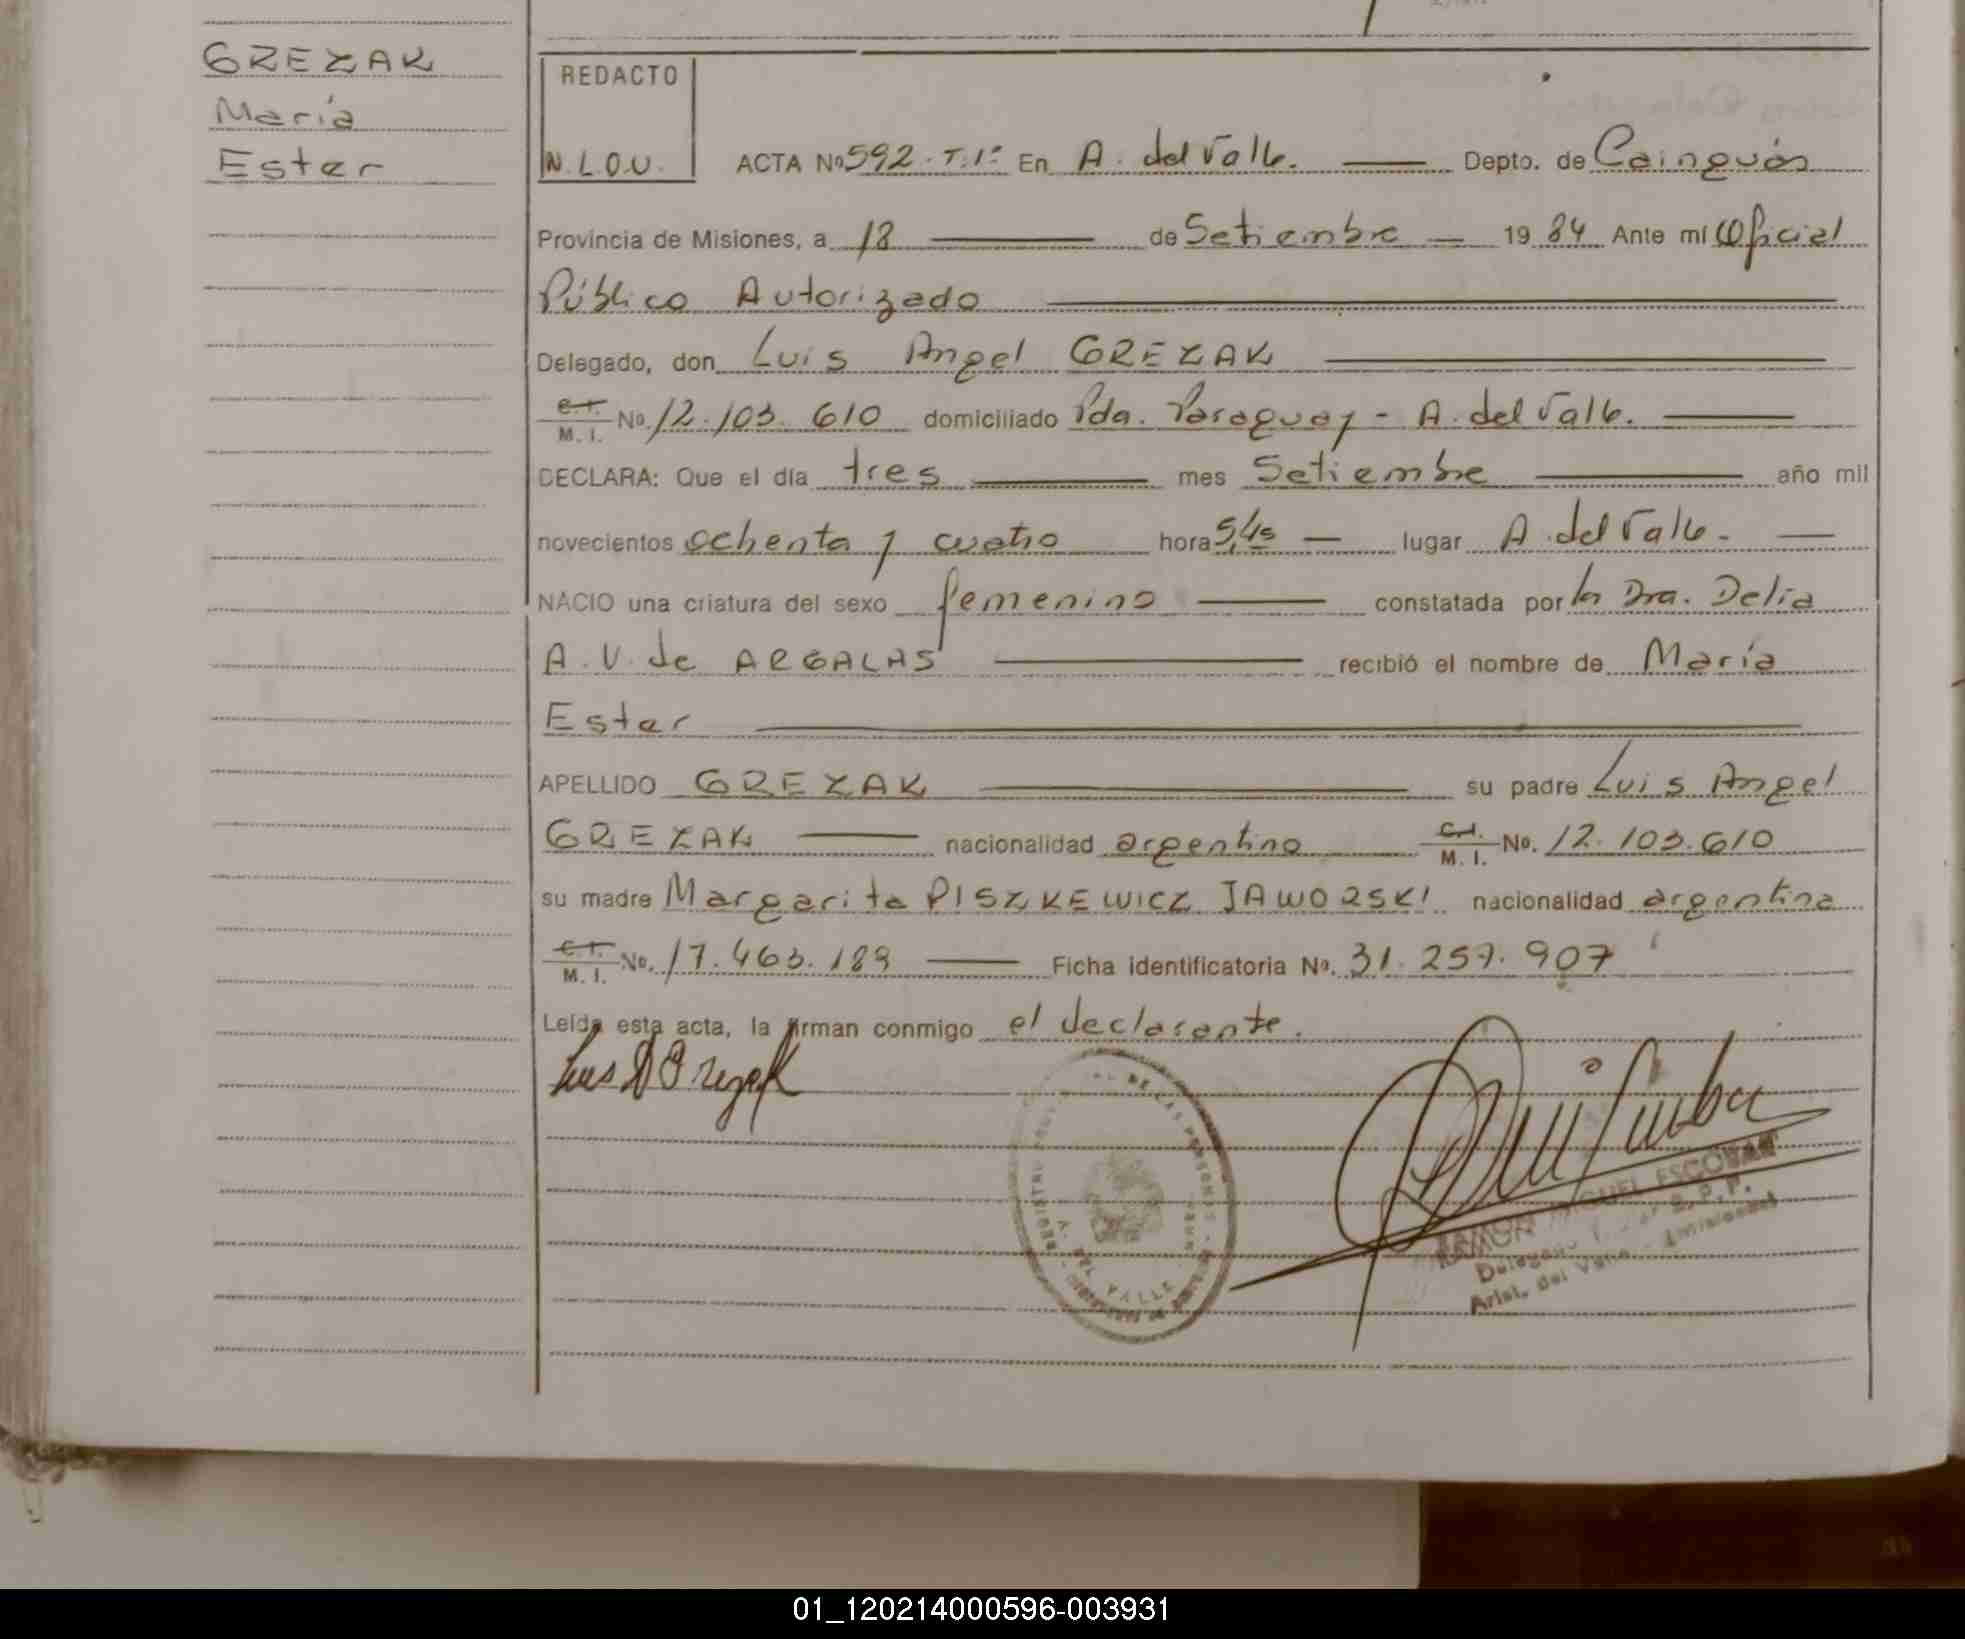 GREZAK
María
Ester
REDACTO
N.L.O.U.
ACTA Nº 592-T.1º En A. del Valle. Depto. de Cainguás
Provincia de Misiones, a 18 de Setiembre 1984 Ante mí Oficial
Público Autorizado
Delegado, don Luis Angel GREZAK
C.I. M. I. No. 12.103.610 domiciliado Pda. Paraguay - A. del Valle.
DECLARA: Que el día tres mes Setiembre año mil
novecientos ochenta y cuatro hora 5,45 lugar A. del Valle.
NACIO una criatura del sexo femenino constatada por la Dra. Delia
A.V. de ARGALAS recibió el nombre de María
Ester
APELLIDO GREZAK su padre Luis Angel
GREZAK nacionalidad argentino C.I. M. I. No. 12.103.610
su madre Margarita PISZKEWICZ JAWORSKI nacionalidad argentina
C.I. M. I. No. 17.463.189 Ficha identificatoria No. 31.257.907
Leída esta acta, la firman conmigo el declarante.
Luis A Grezak
DE LAS PERSONAS
A. DEL VALLE
RAMON MIGUEL ESCOBAR
Delegado R.P.P.
Arist. del Valle - Misiones
01_120214000596-003931